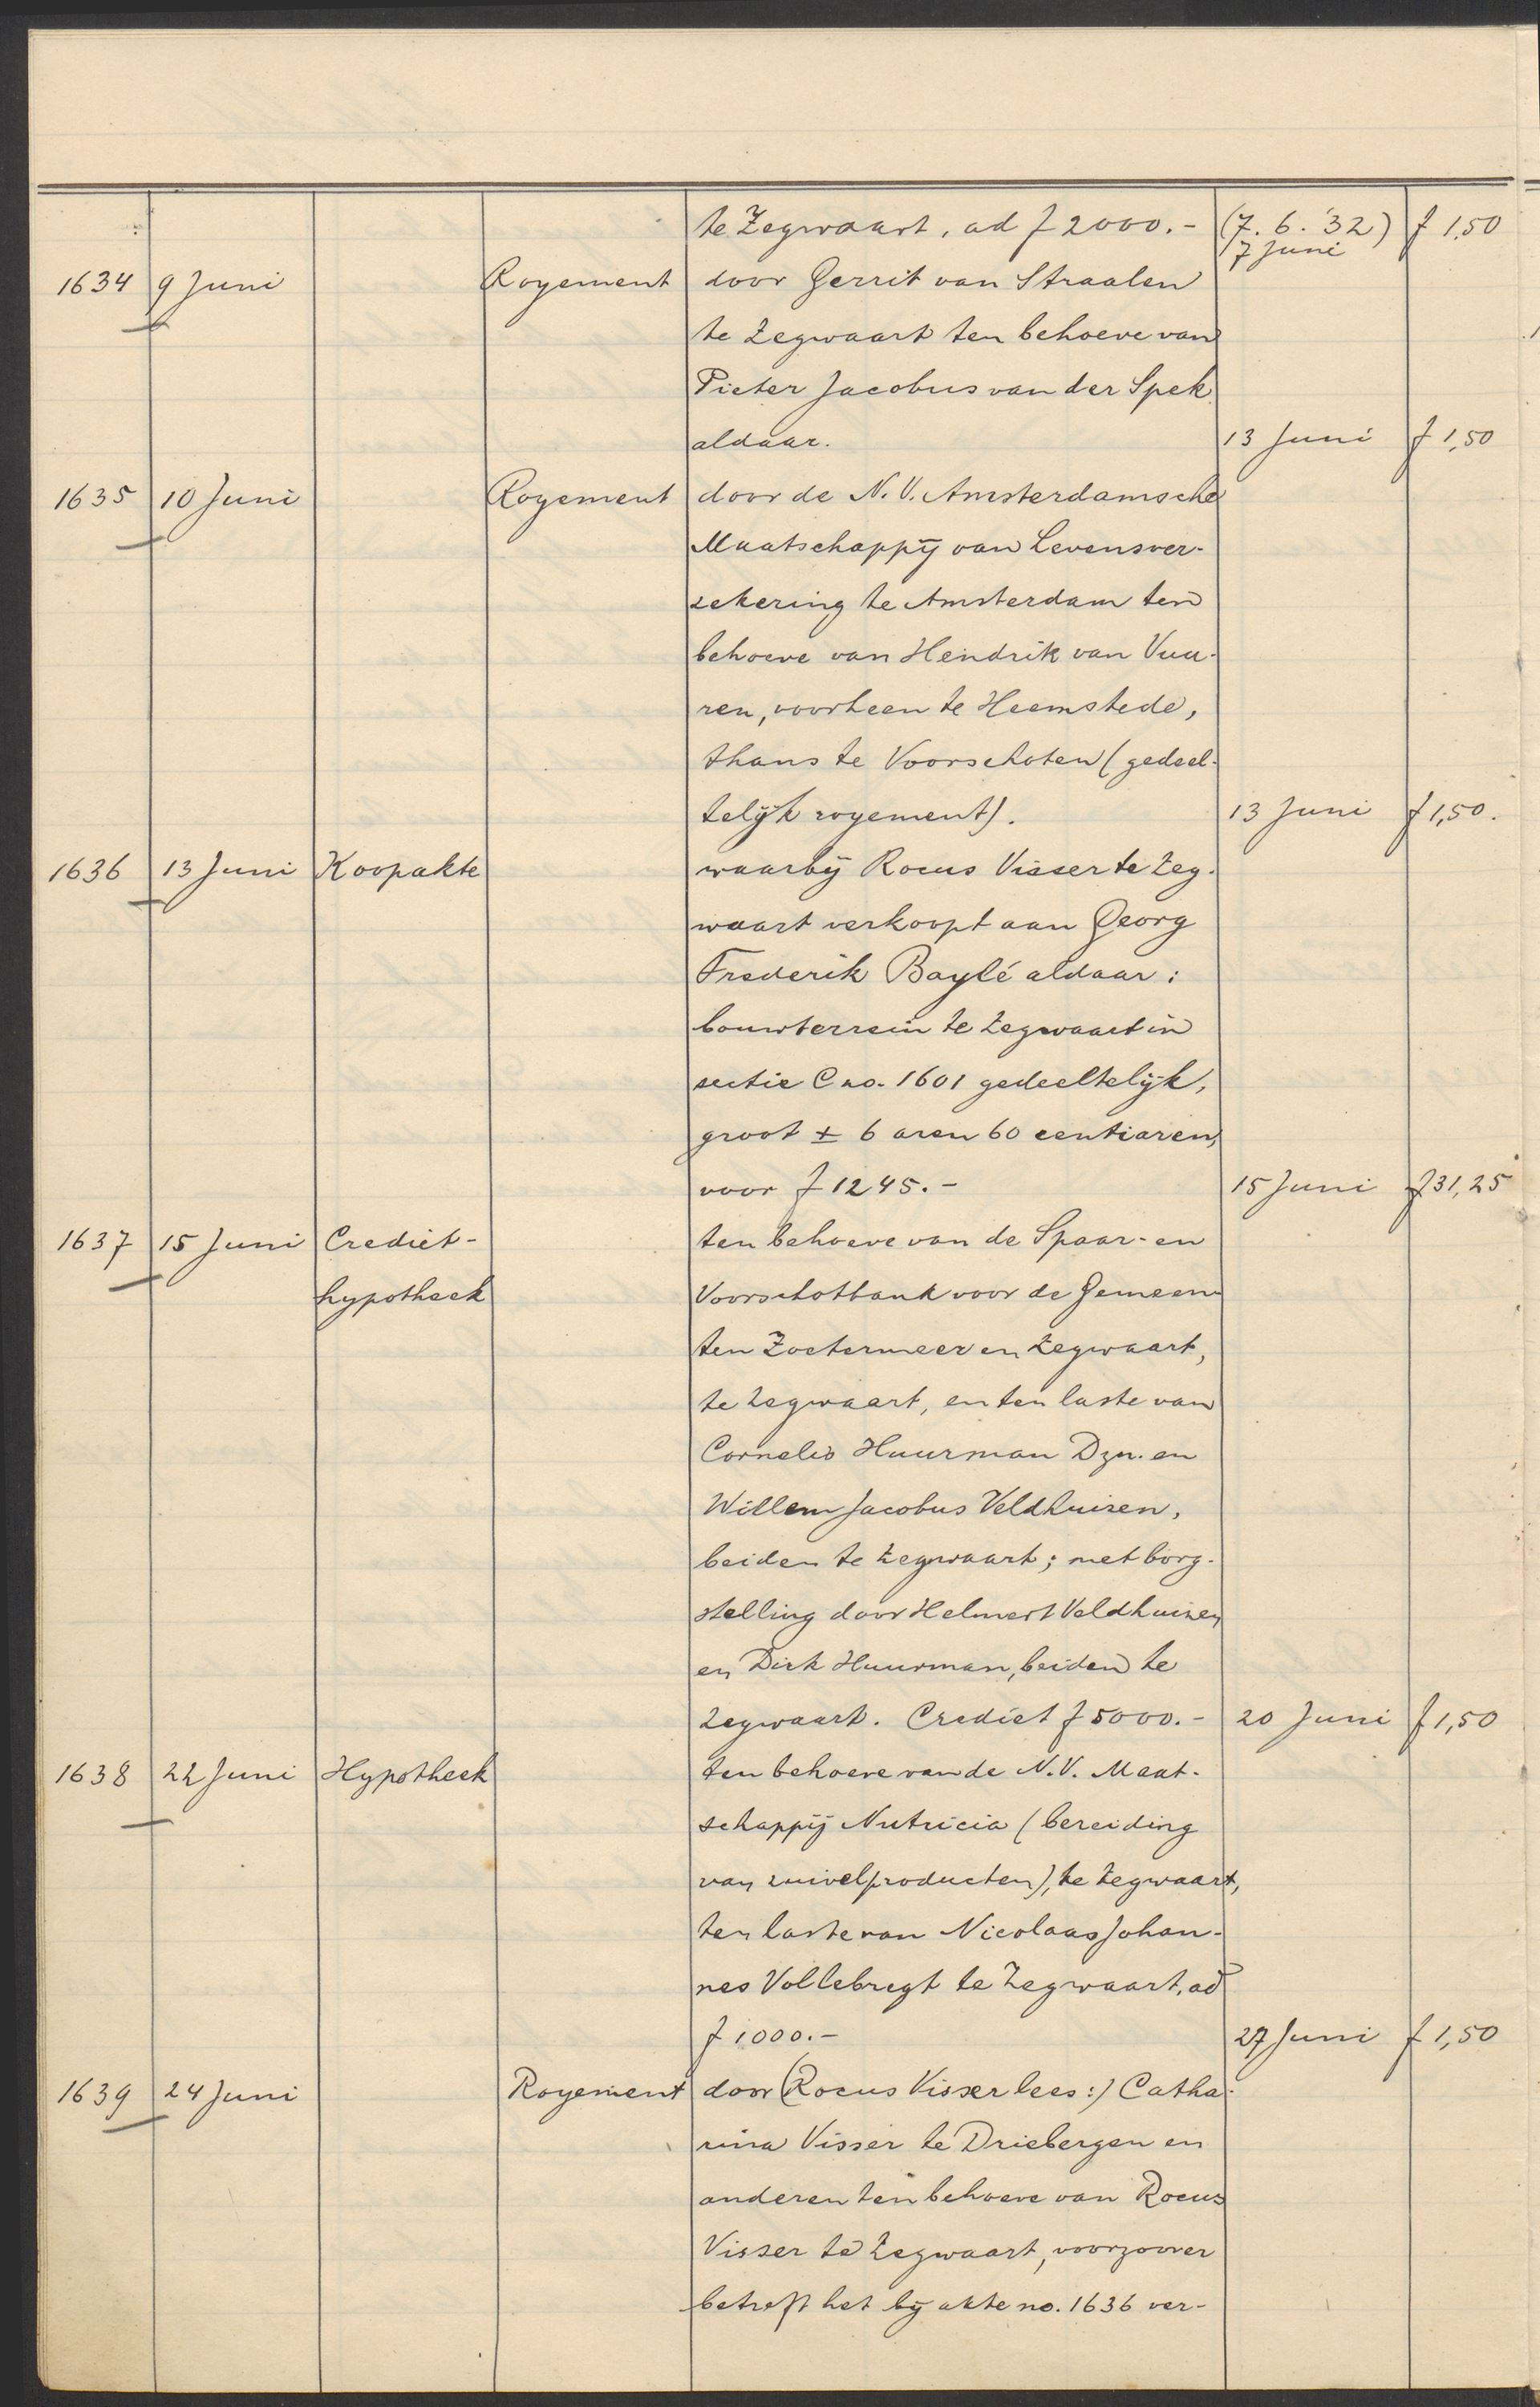 te Zegwaart, ad f 2000.- (7. 6. '32) f 1,50
7 Juni
1634 9 Juni Royement door Gerrit van Straalen
te Zegwaart ten behoeve van
Pieter Jacobus van der Spek
aldaar. 13 Juni f 1,50
1635 10 Juni Royement door de N.V. Amsterdamsche
Maatschappij van Levensver-
zekering te Amsterdam ten
behoeve van Hendrik van Vuu-
ren, voorheen te Heemstede,
thans te Voorschoten (gedeel-
telijk royement). 13 Juni f 1,50.
1636 13 Juni Koopakte waarbij Rocus Visser te Zeg-
waart verkoopt aan Georg
Frederik Baylé aldaar:
bouwterrein te Zegwaart in
sectie C no. 1601 gedeeltelijk,
groot ± 6 aren 60 centiaren,
voor f 1245.- 15 Juni f 31,25
1637 15 Juni Crediet- ten behoeve van de Spaar- en
hypotheek Voorschotbank voor de Gemeen-
ten Zoetermeer en Zegwaart,
te Zegwaart, en ten laste van
Cornelis Huurman Dzn. en
Willem Jacobus Veldhuizen,
beiden te Zegwaart; met borg-
stelling door Helmert Veldhuizen
en Dirk Huurman, beiden te
Zegwaart. Crediet f 5000.- 20 Juni f 1,50
1638 22 Juni Hypotheek ten behoeve van de N.V. Maat-
schappij Nutricia (bereiding
van zuivelproducten), te Zegwaart,
ten laste van Nicolaas Johan-
nes Vollebregt te Zegwaart, ad
f 1000.- 27 Juni f 1,50
1639 24 Juni Royement door (Rocus Visser lees:) Catha-
rina Visser te Driebergen en
anderen ten behoeve van Rocus
Visser te Zegwaart, voorzoover
betreft het bij akte no. 1636 ver-